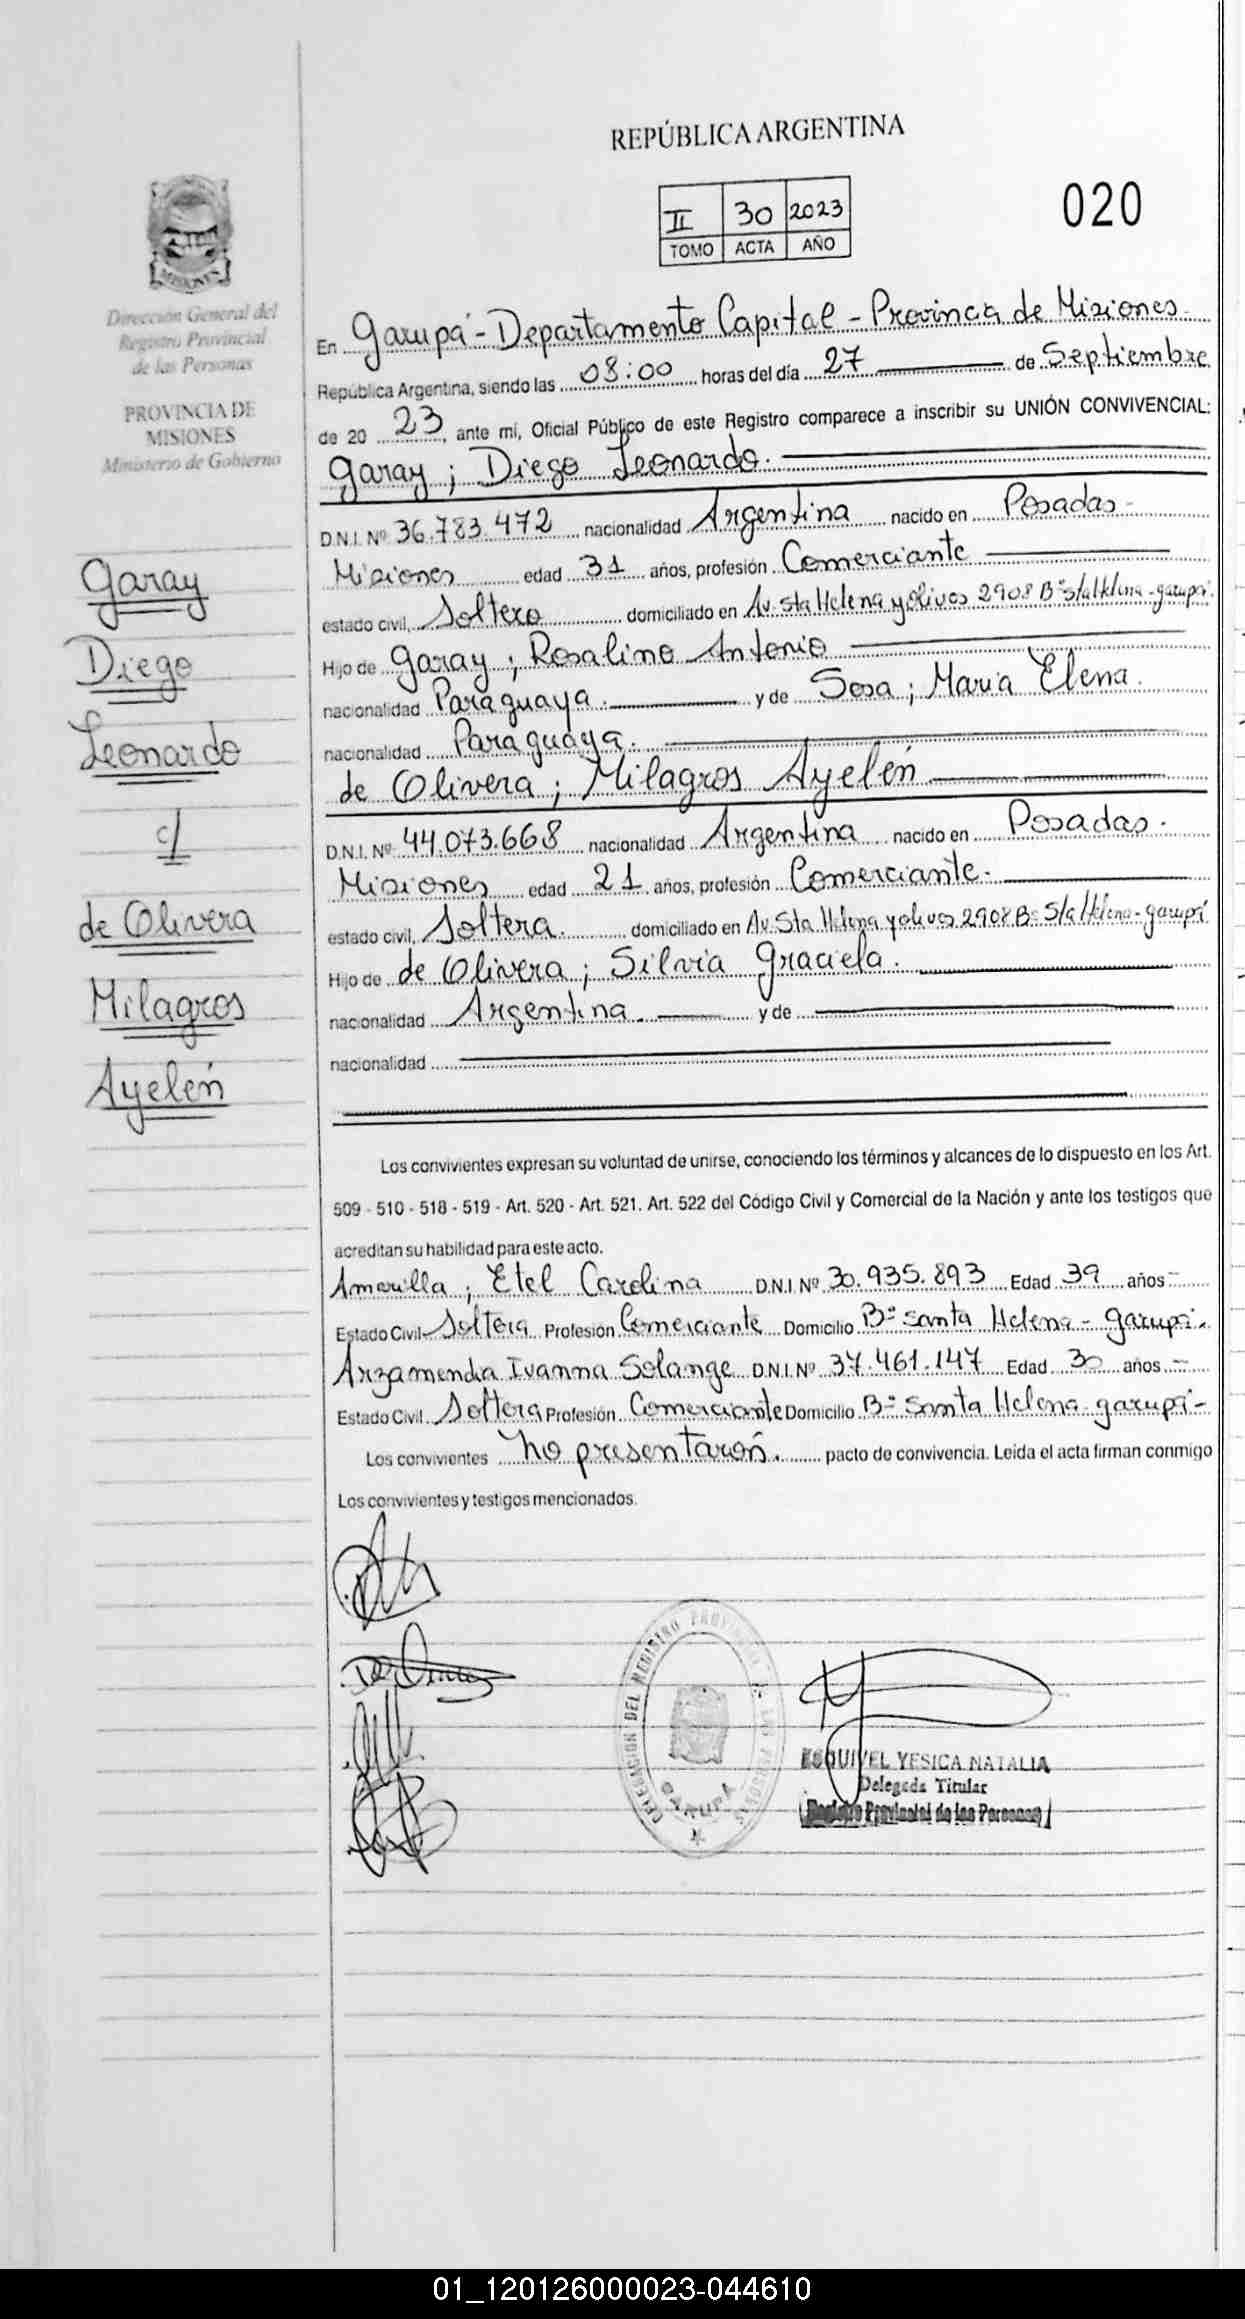 REPÚBLICA ARGENTINA
II 30 2023
TOMO ACTA AÑO
020
MISIONES
Dirección General del
Registro Provincial
de las Personas
PROVINCIA DE
MISIONES
Ministerio de Gobierno
Garay
Diego
Leonardo
c/
de Olivera
Milagros
Ayelén
En Garupá - Departamento Capital - Provincia de Misiones
República Argentina, siendo las 08:00 horas del día 27 de Septiembre
de 20 23, ante mí, Oficial Público de este Registro comparece a inscribir su UNIÓN CONVIVENCIAL:
Garay; Diego Leonardo.
D.N.I. Nº 36.783.472 nacionalidad Argentina nacido en Posadas -
Misiones edad 31 años, profesión Comerciante
estado civil, Soltero domiciliado en Av. Sta Helena y Olivos 2908 Bº Sta Helena - Garupá.
Hijo de Garay; Rosalino Antonio
nacionalidad Paraguaya. y de Sosa; Maria Elena.
nacionalidad Paraguaya.
de Olivera; Milagros Ayelén
D.N.I. Nº 44.073.668 nacionalidad Argentina nacido en Posadas.
Misiones edad 21 años, profesión Comerciante.
estado civil, Soltera. domiciliado en Av. Sta Helena y olivos 2908 Bº Sta Helena - Garupá
Hijo de de Olivera; Silvia Graciela.
nacionalidad Argentina. y de
nacionalidad
Los convivientes expresan su voluntad de unirse, conociendo los términos y alcances de lo dispuesto en los Art.
509 - 510 - 518 - 519 - Art. 520 - Art. 521. Art. 522 del Código Civil y Comercial de la Nación y ante los testigos que
acreditan su habilidad para este acto.
Amarilla; Etel Carolina D.N.I. Nº 30.935.893 Edad 39 años -
Estado Civil Soltera Profesión Comerciante Domicilio Bº Santa Helena - Garupá.
Arzamendia Ivanna Solange D.N.I. Nº 37.461.147 Edad 30 años -
Estado Civil Soltera Profesión Comerciante Domicilio Bº Santa Helena - Garupá -
Los convivientes no presentaron. pacto de convivencia. Leída el acta firman conmigo
Los convivientes y testigos mencionados.
DELEGACION DEL REGISTRO PROVINCIAL DE LAS PERSONAS
GARUPÁ
ESQUIVEL YESICA NATALIA
Delegada Titular
Registro Provincial de las Personas
01_120126000023-044610